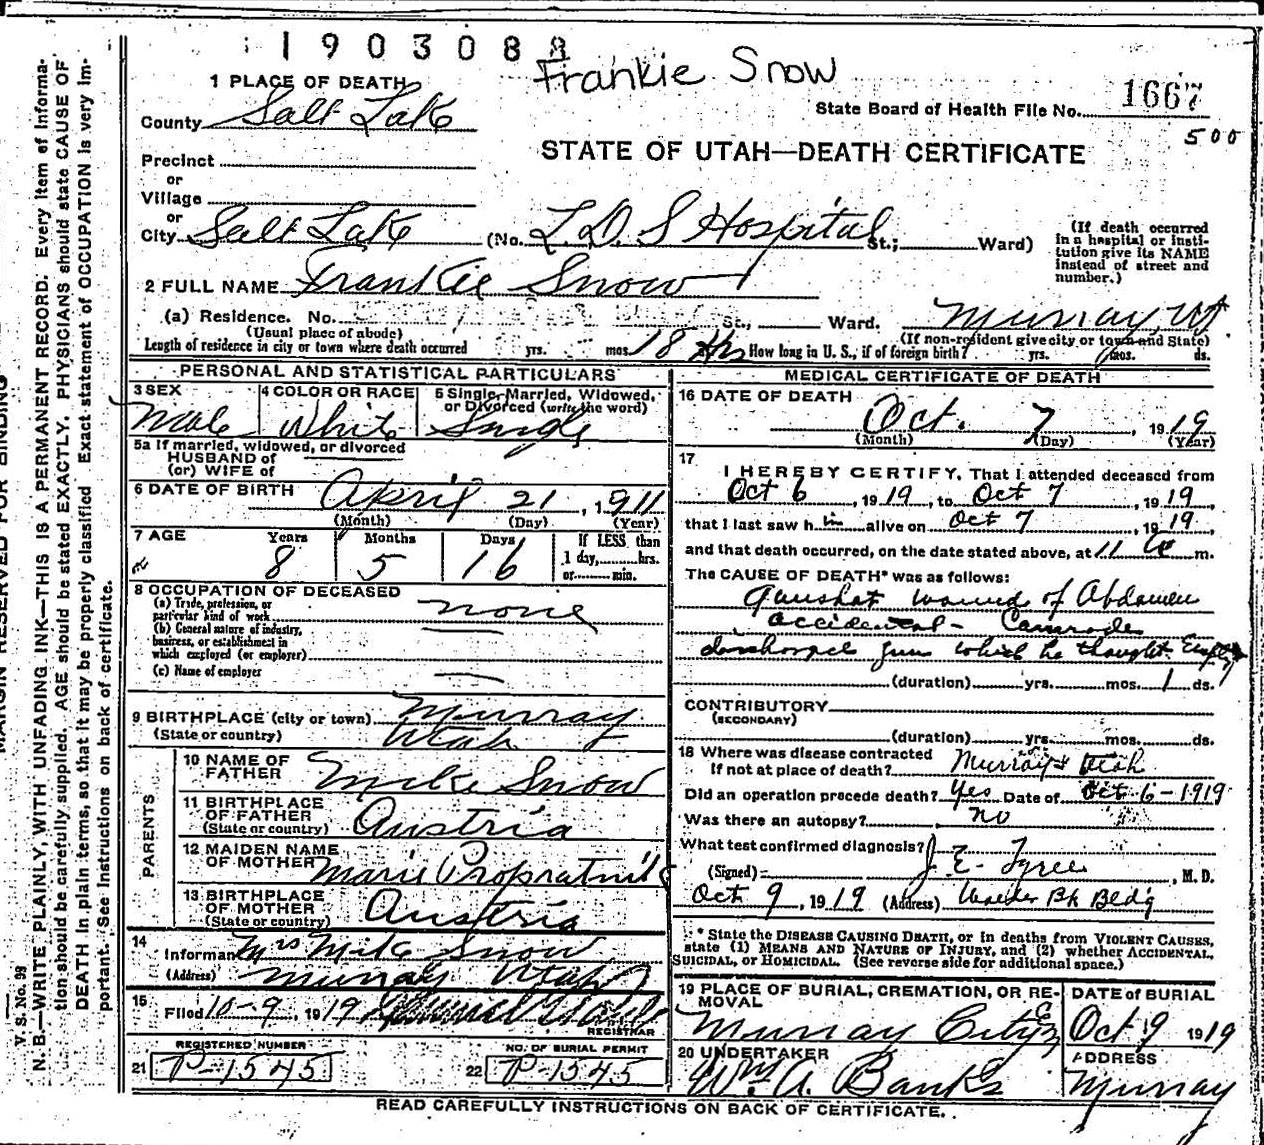 1903088
Frankie Snow
1 PLACE OF DEATH
State Board of Health File No. 1667
County Salt Lake
500
STATE OF UTAH—DEATH CERTIFICATE
Precinct
or
Village
or
City Salt Lake (No. L.D.S Hospital St.; Ward)
(If death occurred in a hospital or institution give its NAME instead of street and number.)
2 FULL NAME Frankie Snow
(a) Residence. No. St., Ward. Murray, Ut
(Usual place of abode) (If non-resident give city or town and State)
Length of residence in city or town where death occurred yrs. mos. 18 Hrs How long in U. S., if of foreign birth? yrs. mos. ds.
PERSONAL AND STATISTICAL PARTICULARS
3 SEX 4 COLOR OR RACE 5 Single, Married, Widowed, or Divorced (write the word)
Male White Single
5a If married, widowed, or divorced
HUSBAND of
(or) WIFE of
6 DATE OF BIRTH April 21, 1911
(Month) (Day) (Year)
7 AGE Years Months Days If LESS than
8 5 16 1 day, hrs.
or min.
8 OCCUPATION OF DECEASED
(a) Trade, profession, or particular kind of work none
(b) General nature of industry, business, or establishment in which employed (or employer)
(c) Name of employer
9 BIRTHPLACE (city or town) Murray
(State or country) Utah
PARENTS
10 NAME OF FATHER Mike Snow
11 BIRTHPLACE OF FATHER (State or country) Austria
12 MAIDEN NAME OF MOTHER Marie Propratnik
13 BIRTHPLACE OF MOTHER (State or country) Austria
14 Informant Mrs Mike Snow
(Address) Murray Utah
15 Filed 10-9, 1919
REGISTRAR
REGISTERED NUMBER NO. OF BURIAL PERMIT
21 P-1545 22 P-1545
MEDICAL CERTIFICATE OF DEATH
16 DATE OF DEATH
Oct. 7, 1919
(Month) (Day) (Year)
17
I HEREBY CERTIFY, That I attended deceased from
Oct 6, 1919, to Oct 7, 1919
that I last saw him alive on Oct 7, 1919,
and that death occurred, on the date stated above, at 11 a m.
The CAUSE OF DEATH* was as follows:
Gunshot wound of Abdomen
accidental - Comrade
discharged gun which he thought Empty
(duration) yrs. mos. 1 ds.
CONTRIBUTORY
(SECONDARY)
(duration) yrs. mos. ds.
18 Where was disease contracted
if not at place of death? Murray Utah
Did an operation precede death? Yes Date of Oct 6-1919
Was there an autopsy? no
What test confirmed diagnosis?
(Signed) J. E. Tyree, M. D.
Oct 9, 1919 (Address) Walker Bk Bldg
* State the DISEASE CAUSING DEATH, or in deaths from VIOLENT CAUSES,
state (1) MEANS AND NATURE OF INJURY, and (2) whether ACCIDENTAL,
SUICIDAL, or HOMICIDAL. (See reverse side for additional space.)
19 PLACE OF BURIAL, CREMATION, OR REMOVAL DATE of BURIAL
Murray City Oct 9 1919
20 UNDERTAKER ADDRESS
Wm. A. Banks Murray
READ CAREFULLY INSTRUCTIONS ON BACK OF CERTIFICATE.
V. S. No. 99
MARGIN RESERVED FOR BINDING
N. B.—WRITE PLAINLY, WITH UNFADING INK—THIS IS A PERMANENT RECORD. Every item of information
should be carefully supplied. AGE should be stated EXACTLY. PHYSICIANS should state CAUSE OF
DEATH in plain terms, so that it may be properly classified. Exact statement of OCCUPATION is very important.
See Instructions on back of certificate.